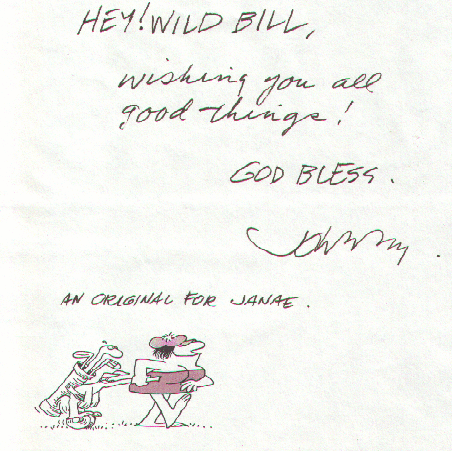 HEY! WILD BILL,
wishing you all
good things!
GOD BLESS.
Johnny.
AN ORIGINAL FOR JANAE.